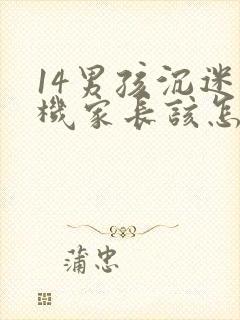 14男孩沉迷
機家长該怎
蒲忠